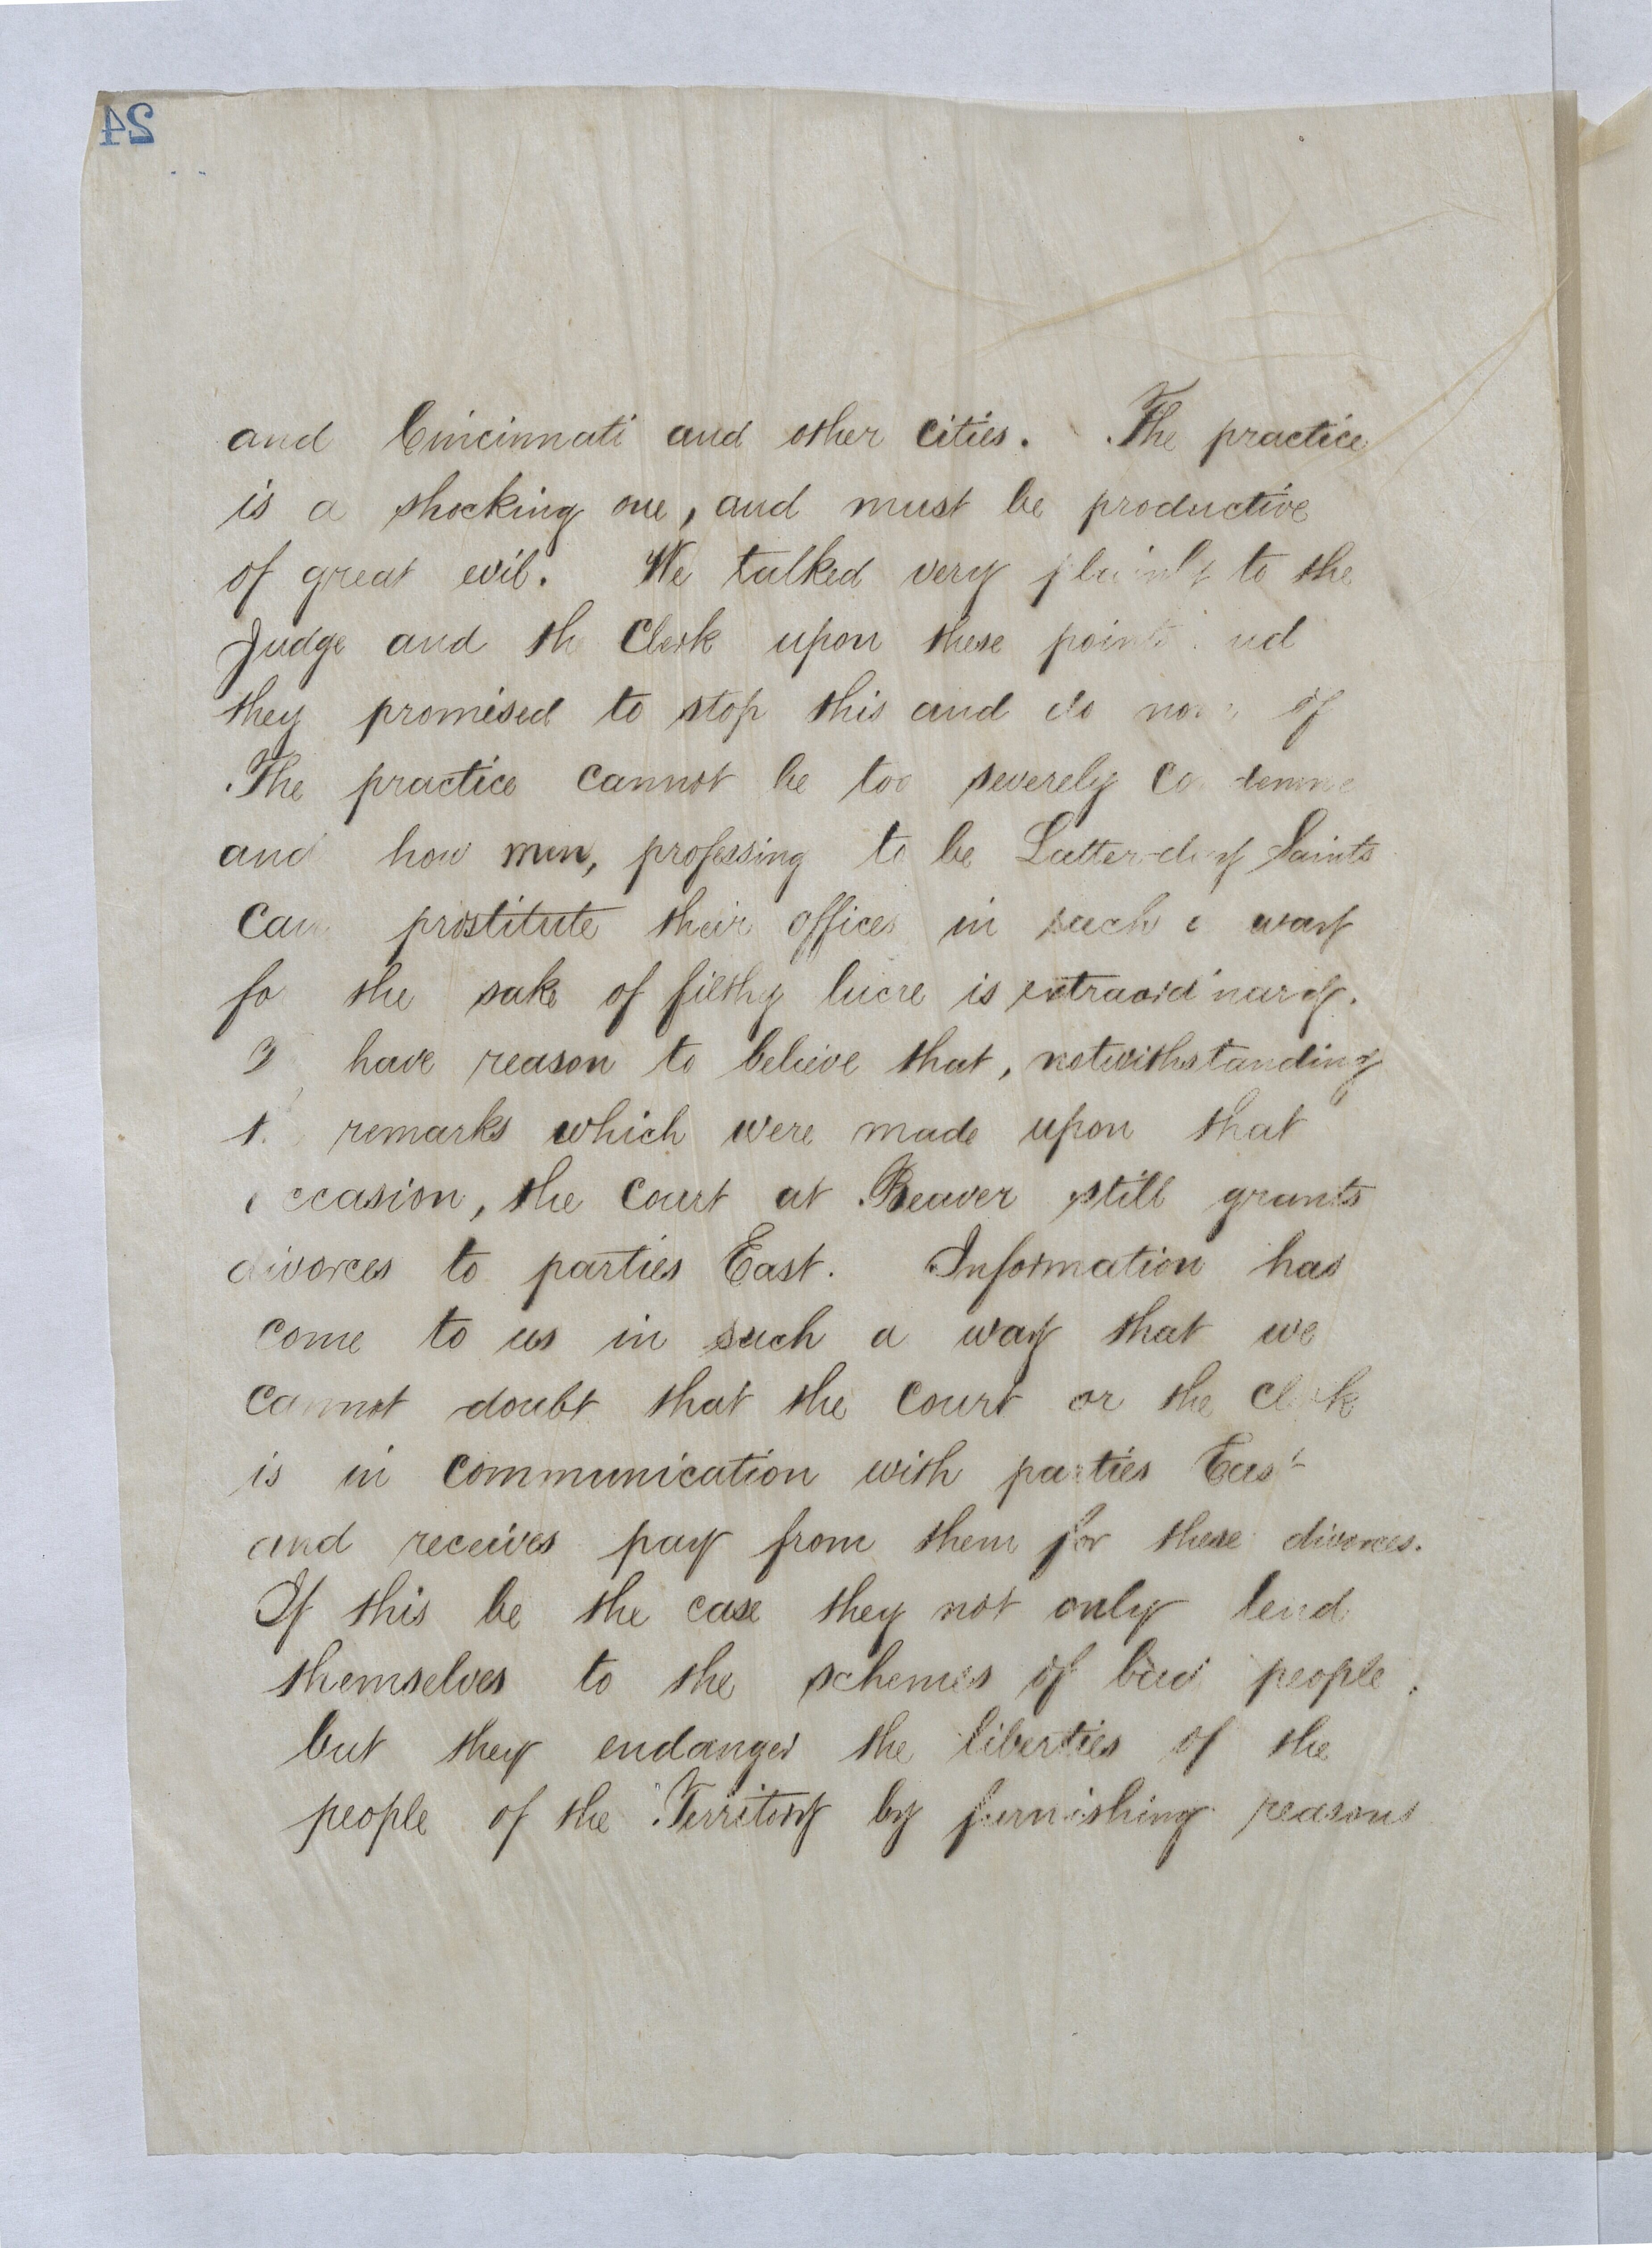 24
and Cincinnati and other cities. The practice
is a shocking one, and must be productive
of great evil. We talked very plainly to the
Judge and th Clerk upon these points
they promised to stop this and do of
The practice cannot be too severely
and how men, professing to be Latter-day Saints
can prostitute their offices in such a way
fo the sake of filthy lucre is extraordinary.
have reason to believe that, notwithstanding
remarks which were made upon that
occasion, the Court at Beaver still grants
divorces to parties East. Information has
come to us in such a way that we
cannot doubt that the Court or the clerk
is in communication with parties East
and receives pay from them for these divorces.
If this be the case they not only lend
themselves to the schemes of bad people,
but they endanger the liberties of the
people of the Territory by furnishing reasons